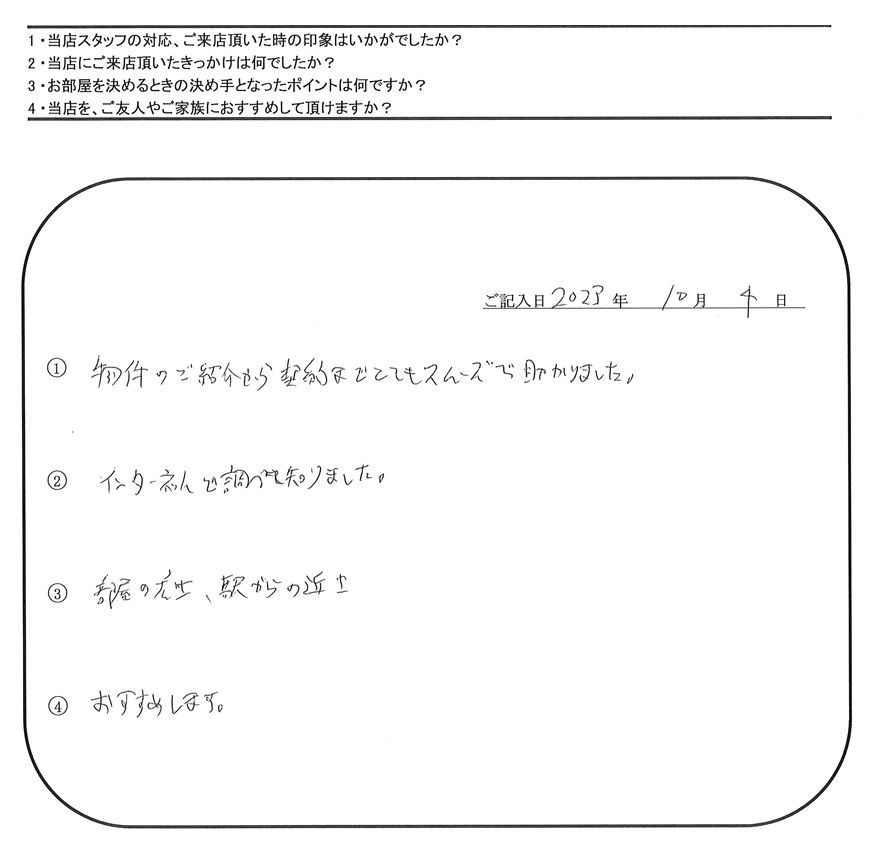 1・当店スタッフの対応、ご来店頂いた時の印象はいかがでしたか?
2・当店にご来店頂いたきっかけは何でしたか?
3・お部屋を決めるときの決め手となったポイントは何ですか?
4・当店を、ご友人やご家族におすすめして頂けますか?
ご記入日 2023 年 10 月 4 日
① 物件のご紹介から契約までとてもスムーズで助かりました。
② インターネットで調べて知りました。
③ 部屋の広さ、駅からの近さ
④ おすすめします。